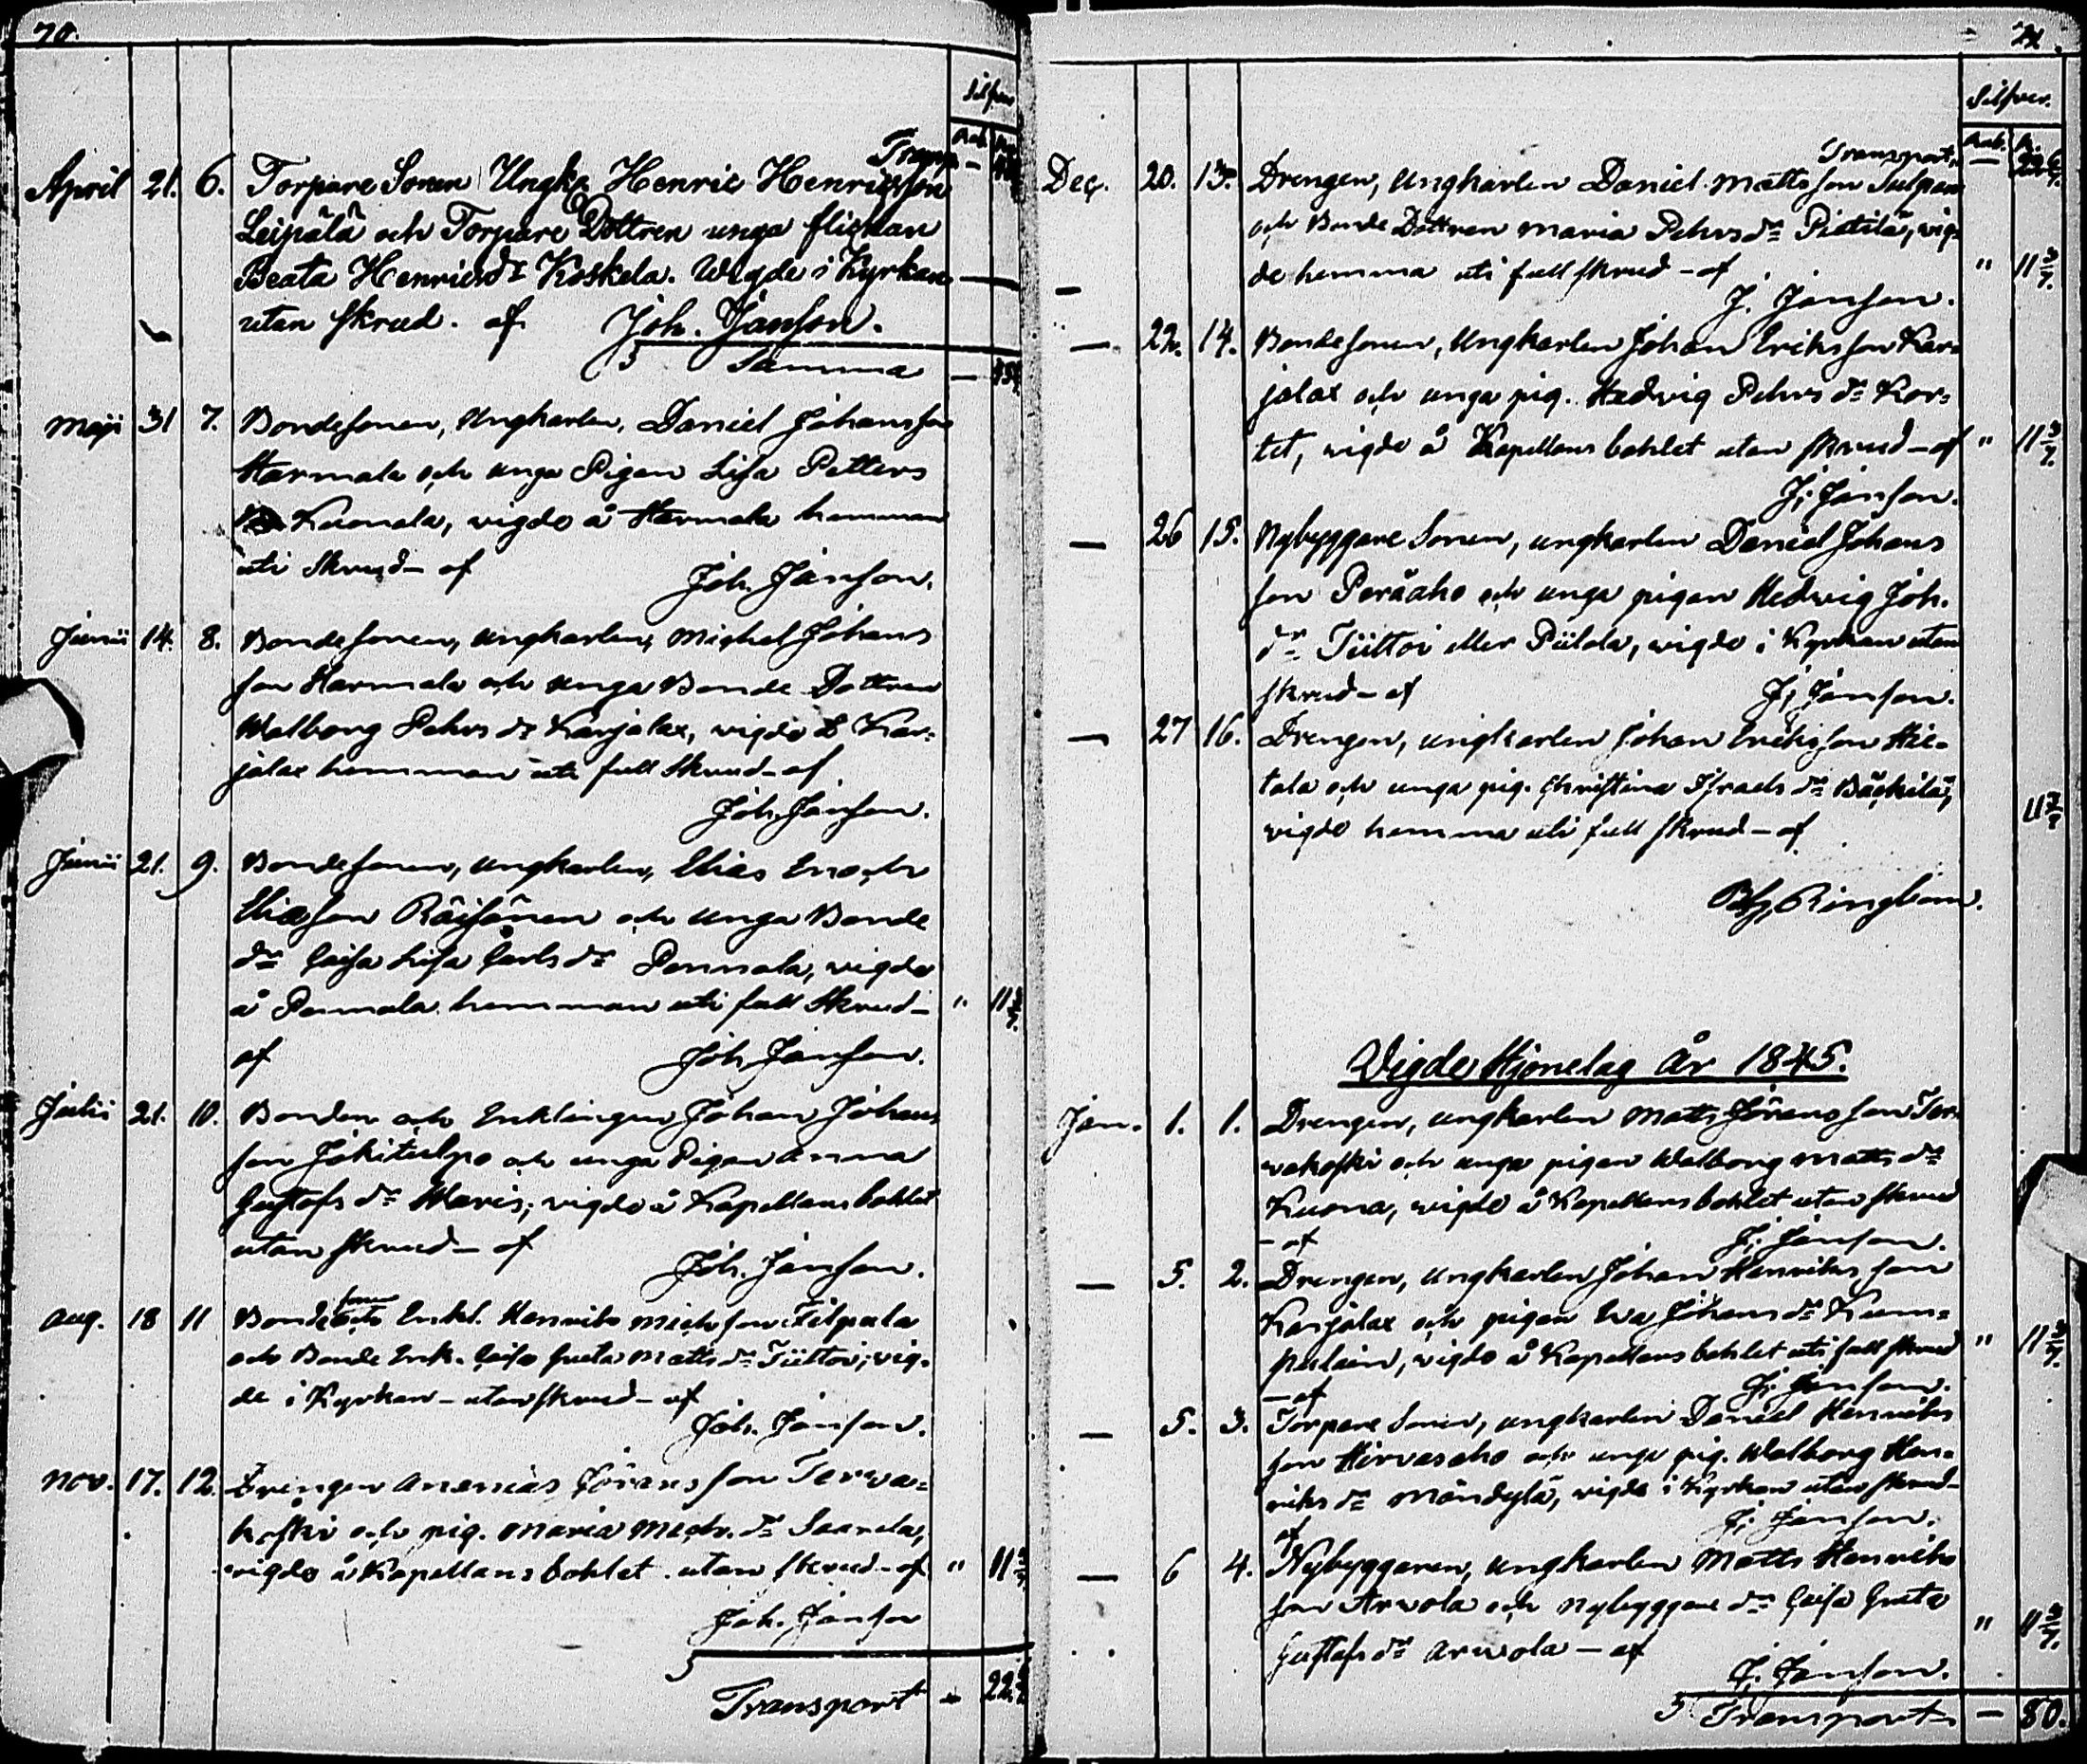 70.
Silfver
Rub. K.
Transp. —
April 21. 6. Torpare Sonen Ungk. Henric Henricsson
Leipälä och Torpare Dottren unga flickan
Beata Henricsdr Koskela. Wigde i Kyrkan —
utan skrud. af Joh. Janson.
Summa —
Maji 31 7. Bondesonen, Ungkarlen, Daniel Johansson
Harmala och unga Pigan Lisa Petters
Kuonala, vigde å Harmala hemman
uti Skrud – af
Joh. Janson.
Junii 14. 8. Bondesonen, Ungkarlen, Michel Johans
son Harmala och unga Bonde Dottren
Walborg Pehrs dr Karjalax, vigde å Kar=
jalax hemman uti full Skrud – af
Joh. Janson.
Junii 21. 9. Bondesonen, Ungkarlen, Elias Enoch
Eliasson Räisänen och unga Bonde
dr Caisa Lisa Carls dr Pennala, vigde
å Pennala hemman uti full Skrud – " 11 3/7.
af Joh. Janson.
Julii 21. 10. Bonden och Enklingen Johan Johans
son Jokitulpo och unga Pigan Anna
Gustafs dr Haris, vigde å Kapellans bohlet
utan skrud – af
Joh. Janson.
Aug. 18 11 Bonde sonen och Enkl. Henriks Mich son Filpula
och Bonde Enk. Caisa Greta Matts dr Tiittoi, vig-
de i Kyrkan – utan skrud – af
Joh. Janson.
Nov. 17. 12. Drengen Ananias Jörans son Terva=
koski och pig. Maria Mich. dr Saarela,
vigde å Kapellans bohlet utan skrud – af " 11 3/7
Joh. Janson
Transport – 22
Silfver.
Rub. K.
Transport —
Dec. 20. 13. Drengen, Ungkarlen Daniel Mattsson
och Bonde Dottren Maria Pehrs dr Pietilä, vig=
de hemma uti full skrud – af " 11 3/7.
J. Janson.
— 22. 14. Bondesonen, Ungkarlen Johan Eriksson Kar=
jalax och unga pig. Hedvig Pehrs dr Kor=
tet, vigde å Kapellans bohlet utan skrud – af " 11 3/7.
J. Janson.
— 26 15. Nybyggare Sonen, ungkarlen Daniel Johans
son Peräaho och unga pigan Hedvig Joh.
dr Tiittoi eller Piilola, vigde i Kyrkan utan
skrud – af J. Janson.
— 27 16. Drengen, ungkarlen Johan Eriksson Hie-
tala och unga pig. Christina Israels dr Bäckilä,
vigde hemma uti full skrud – af 11 3/7
Ringbom.
Vigde Hjonelag År 1845.
Jan. 1. 1. Drengen, ungkarlen Matts Jörans son Ter=
vakoski och unga pigan Walborg Matts dr
Kuona, vigde å Kapellans bohlet utan skrud
– af J. Janson.
— 5. 2. Drengen, Ungkarlen Johan Henriks son
Karjalax och pigan Eva Johans dr Kum=
pulain, vigde å Kapellans bohlet uti full skrud " 11 3/7.
– af J. Janson.
— 5. 3. Torpare Sonen, ungkarlen Daniel Henriks
son Hirvasaho och unga pig. Walborg Hen=
riks dr Mändylä, vigde i Kyrkan utan skrud –
af J. Janson.
— 6 4. Nybyggaren, ungkarlen Matts Henriks
son Arvola och nybyggare dr Caisa Greta
Gustafs dr Arvola – af " 11 3/7.
J. Janson.
Transport – 80.